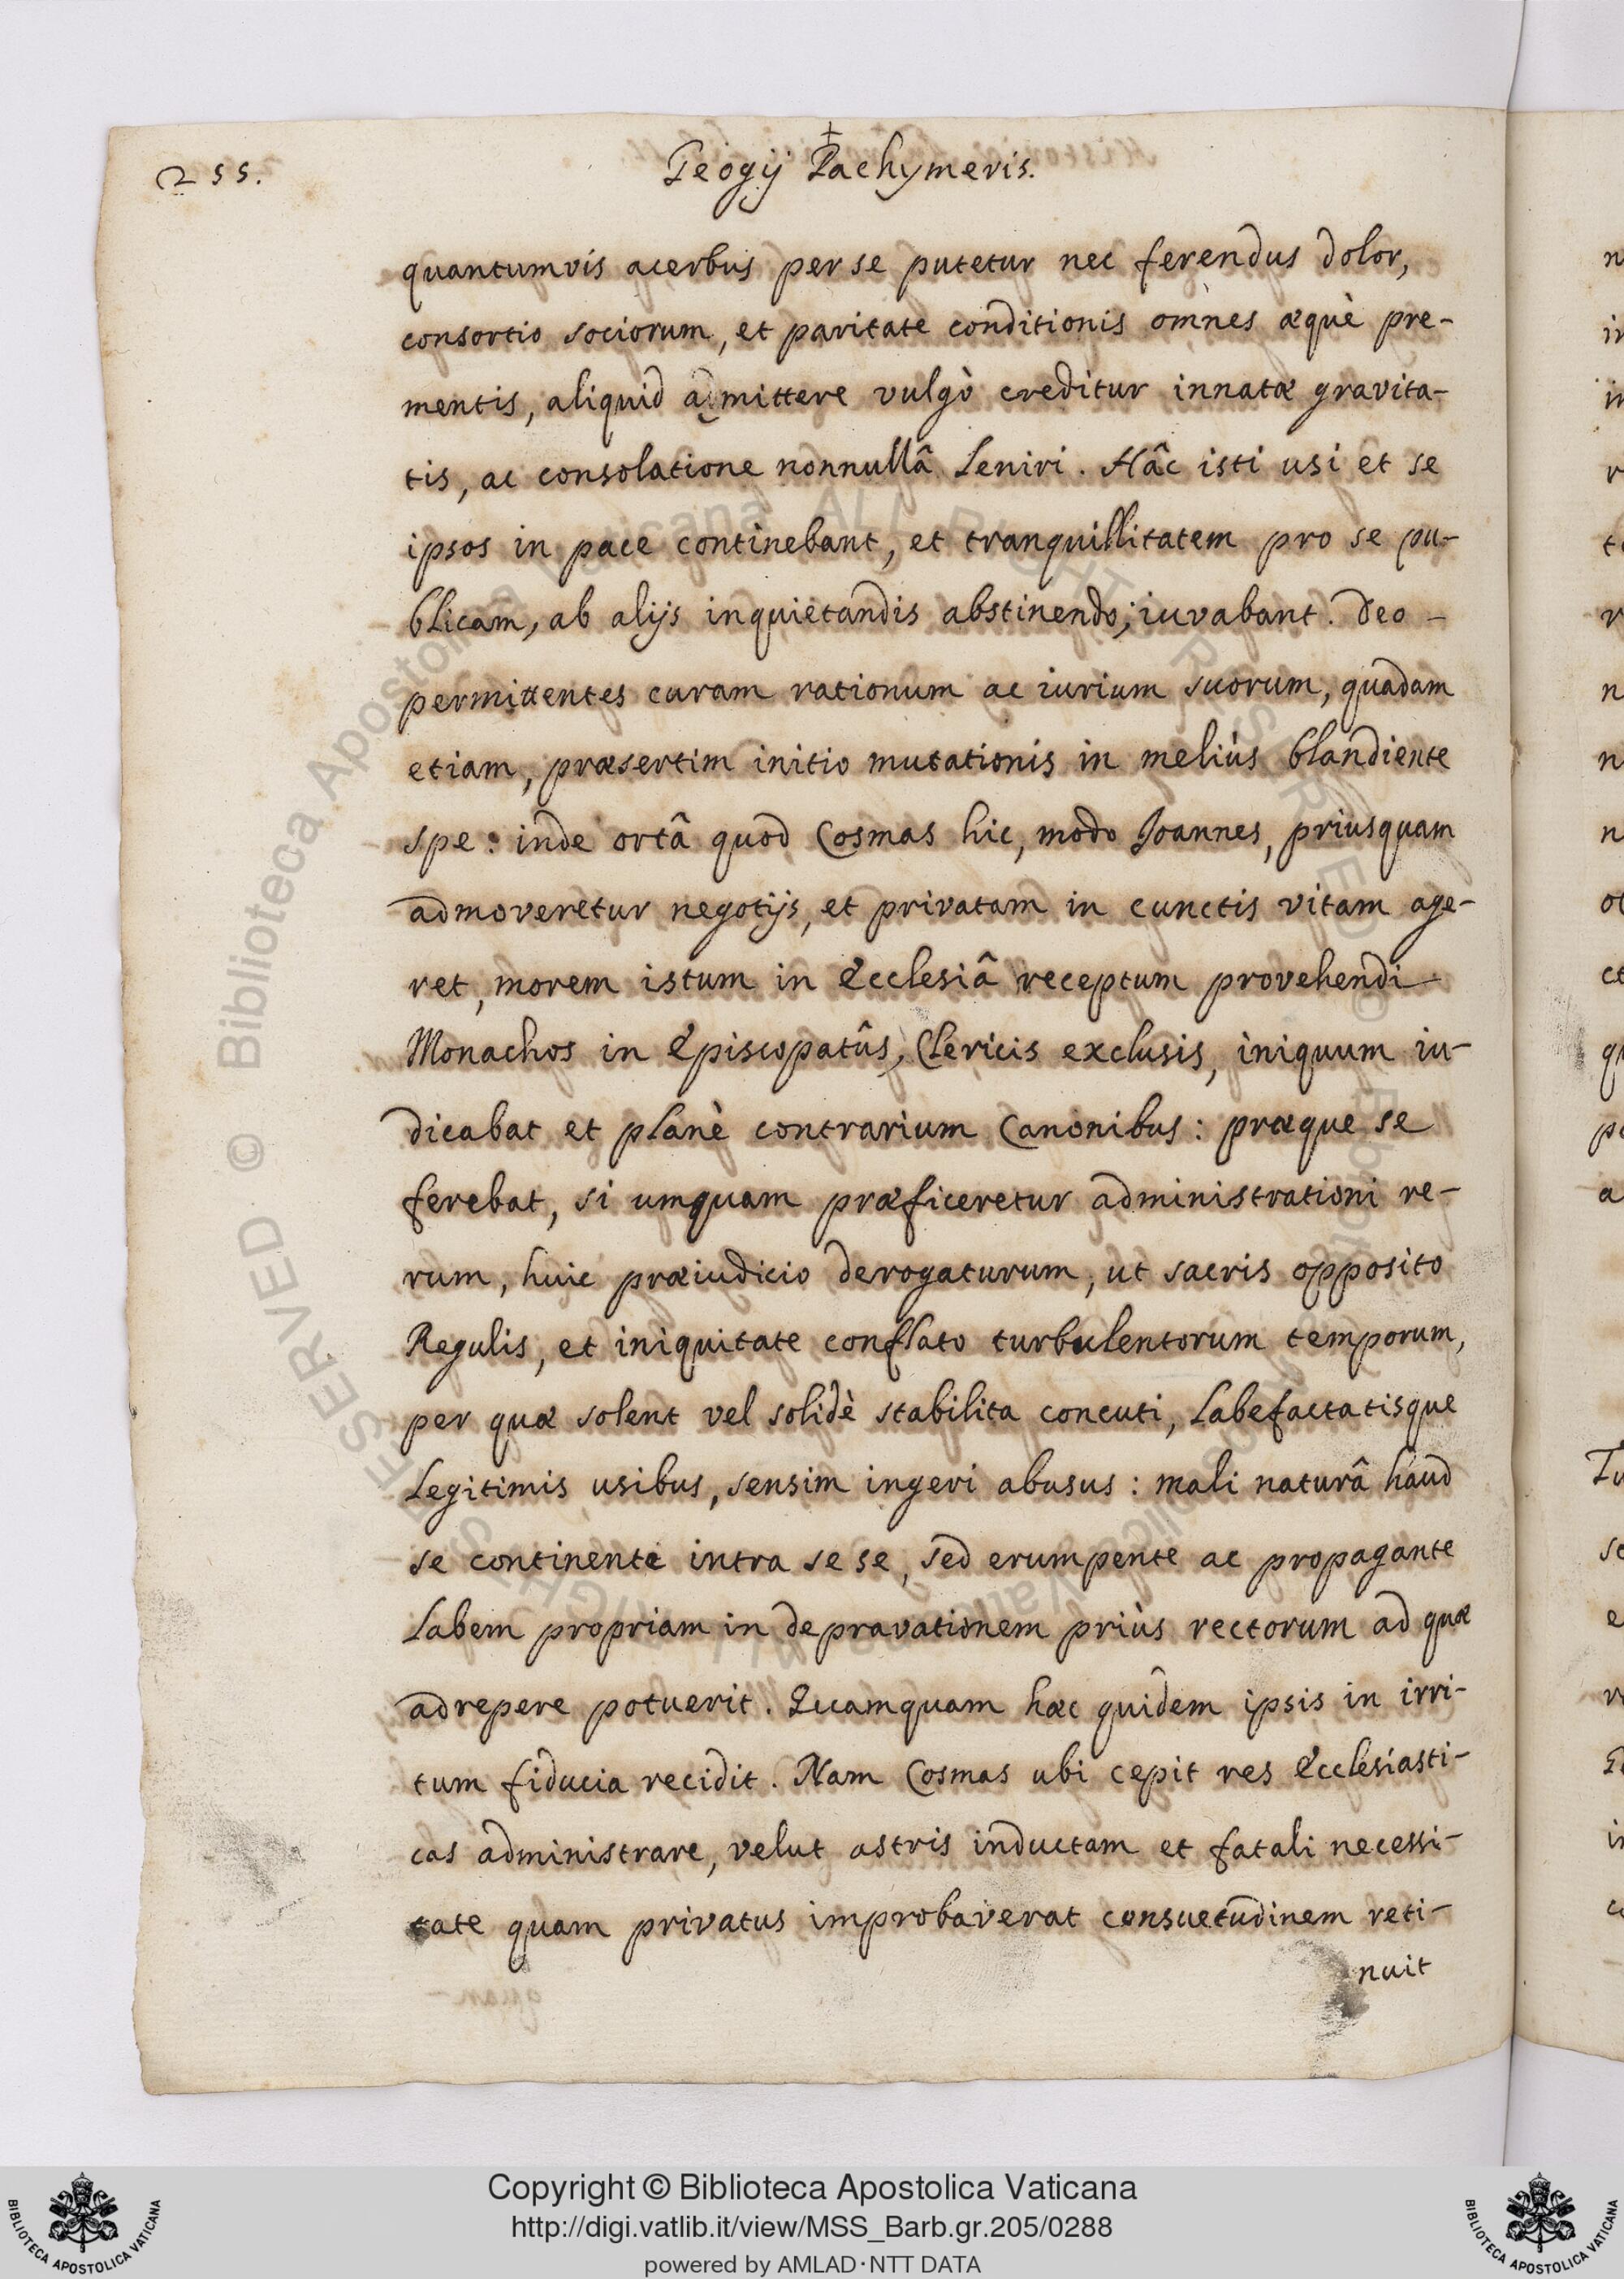 255.
Geogij Pachymeris.
quantumvis acerbus per se putetur nec ferendus dolor,
consortio sociorum, et paritate conditionis omnes æquè pre-
mentis, aliquid admittere vulgò creditur innatæ gravita-
tis, ac consolatione nonnullâ leniri. Hâc isti usi et se
ipsos in pace continebant, et tranquillitatem pro se pu-
blicam, ab alijs inquietandis abstinendo, iuvabant. Deo -
permittentes curam rationum ac iurium suorum, quadam
etiam, præsertim initio mutationis in meliùs blandiente
spe: inde ortâ quod Cosmas hic, modo Joannes, priusquam
admoveretur negotijs, et privatam in cunctis vitam age-
ret, morem istum in Ecclesiâ receptum provehendi
Monachos in Episcopatûs, Clericis exclusis, iniquum iu-
dicabat et planè contrarium Canonibus: præque se
ferebat, si umquam præficeretur administrationi re-
rum, huic præiudicio derogaturum, ut sacris opposito
Regulis, et iniquitate conflato turbulentorum temporum,
per quæ solent vel solidè stabilita concuti, labefactatisque
legitimis usibus, sensim ingeri abusus: mali naturâ haud
se continente intra se se, sed erumpente ac propagante
labem propriam in depravationem priùs rectorum ad quæ
adrepere potuerit. Quamquam hæc quidem ipsis in irri-
tum fiducia recidit. Nam Cosmas ubi cepit res Ecclesiasti-
cas administrare, velut astris inductam et fatali necessi-
tate quam privatus improbaverat consuetudinem reti-
nuit
Copyright © Biblioteca Apostolica Vaticana
http://digi.vatlib.it/view/MSS_Barb.gr.205/0288
powered by AMLAD·NTT DATA